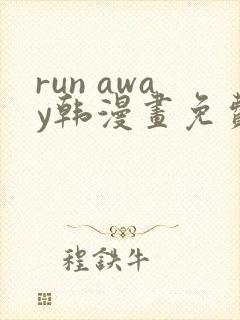 run awa
y韩漫畫免費
程鉄牛